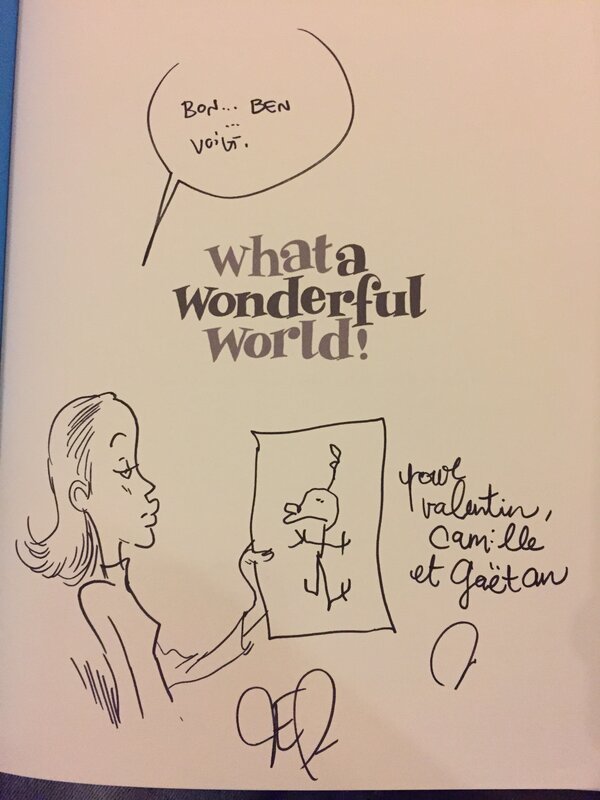 BON... BEN
...
what a
wonderful
world!
pour
valentin,
Camille
et Gaëtan